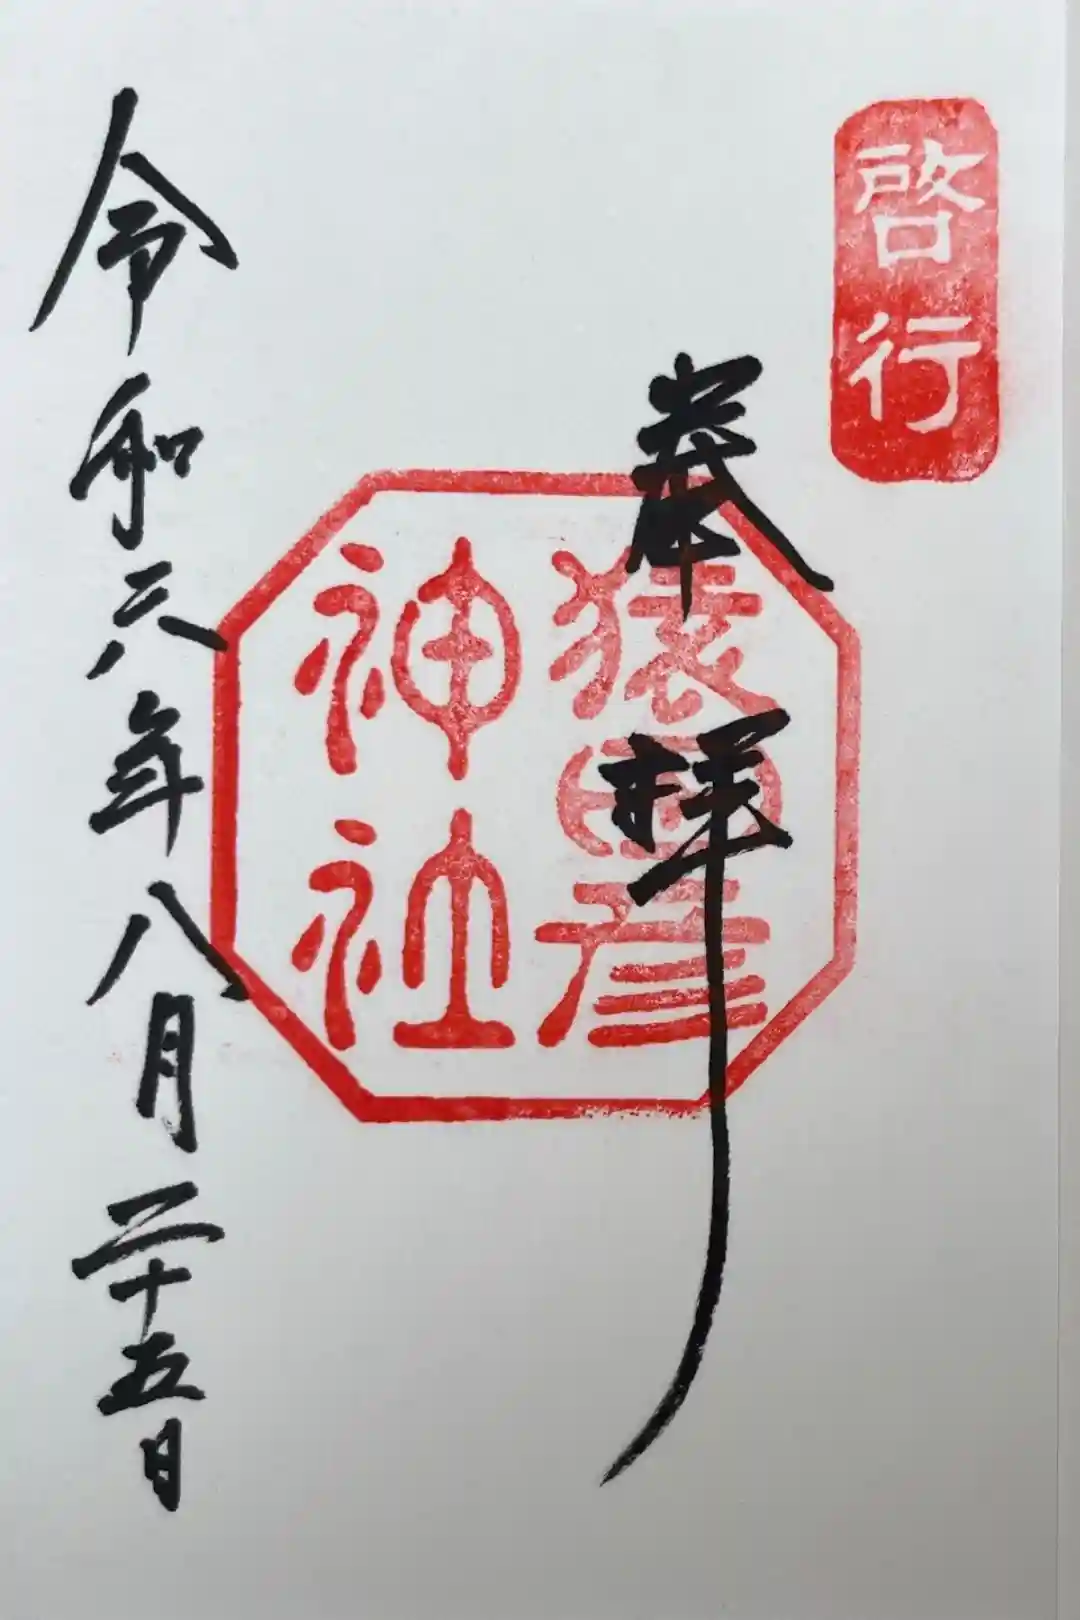 啓行
奉拝
猿田彦
神社
令和六年八月二十五日